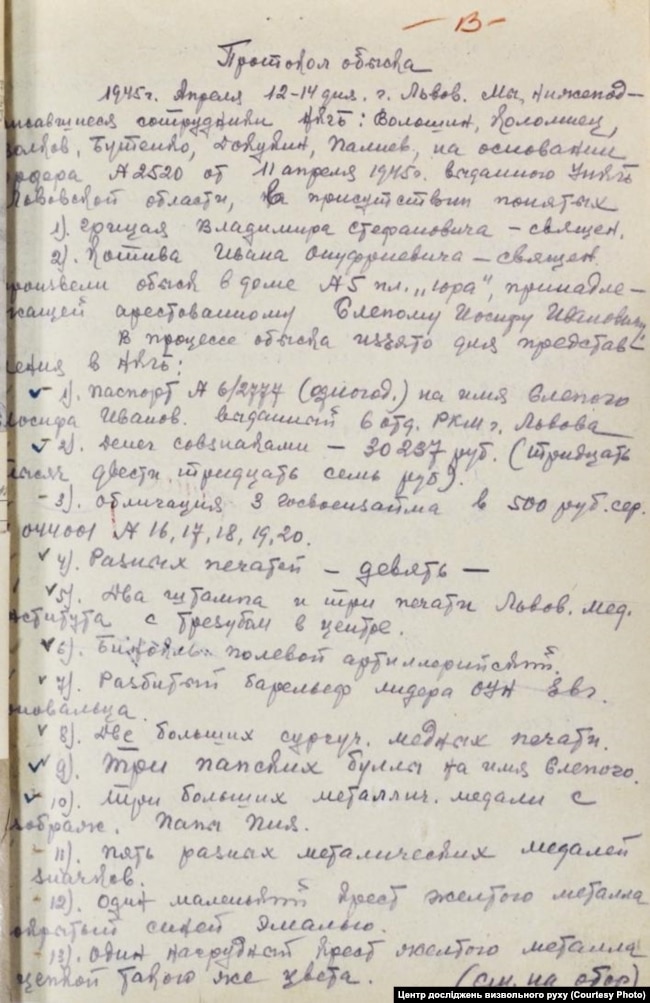 - 13 -
Протокол обыска
1945 г. Апреля 12-14 дня. г. Львов. Мы, нижепод-
писавшиеся сотрудники НКГБ: Волошин, Коломиец,
Волков, Бутенко, Докукин, Палиев, на основании
ордера № 2520 от 11 апреля 1945 г. выданного УНКГБ
Львовской области, в присутствии понятых
1). Грицая Владимира Стефановича – священ.
2). Котива Ивана Онуфриевича – священ.
произвели обыск в доме № 5 пл. „Юра", принадле-
жащей арестованному Слепому Иосифу Ивановичу.
В процессе обыска изъято для представ-
ления в НКГБ:
1). Паспорт № 6/2777 (одногод.) на имя Слепого
Иосифа Иванов. выданный 6 отд. РКМ г. Львова
2). Денег совзнаками – 30237 руб. (тридцать
тысяч двести тридцать семь руб).
- 3). Облигация 3 госвоензайма в 500 руб. сер.
044001 № 16, 17, 18, 19, 20.
4). Разных печатей – девять –
5). Два штампа и три печати Львов. мед.
института с трезубом в центре.
6). Бинокль полевой артиллерийский.
7). Разбитый барельеф лидера ОУН Евг.
Коновальца.
8). Две больших сургуч. медных печати.
9). Три папских буллы на имя Слепого.
10). Три больших металлич. медали с
изображ. Папы Пия.
- 11). Пять разных металических медалей
значков.
- 12). Один маленький крест желтого металла
покрытый синей эмалью.
- 13). Один нагрудный крест желтого металла
цепкой такого же цвета. (см. на обор)
Центр досліджень визвольного руху (Courtesy Photo)